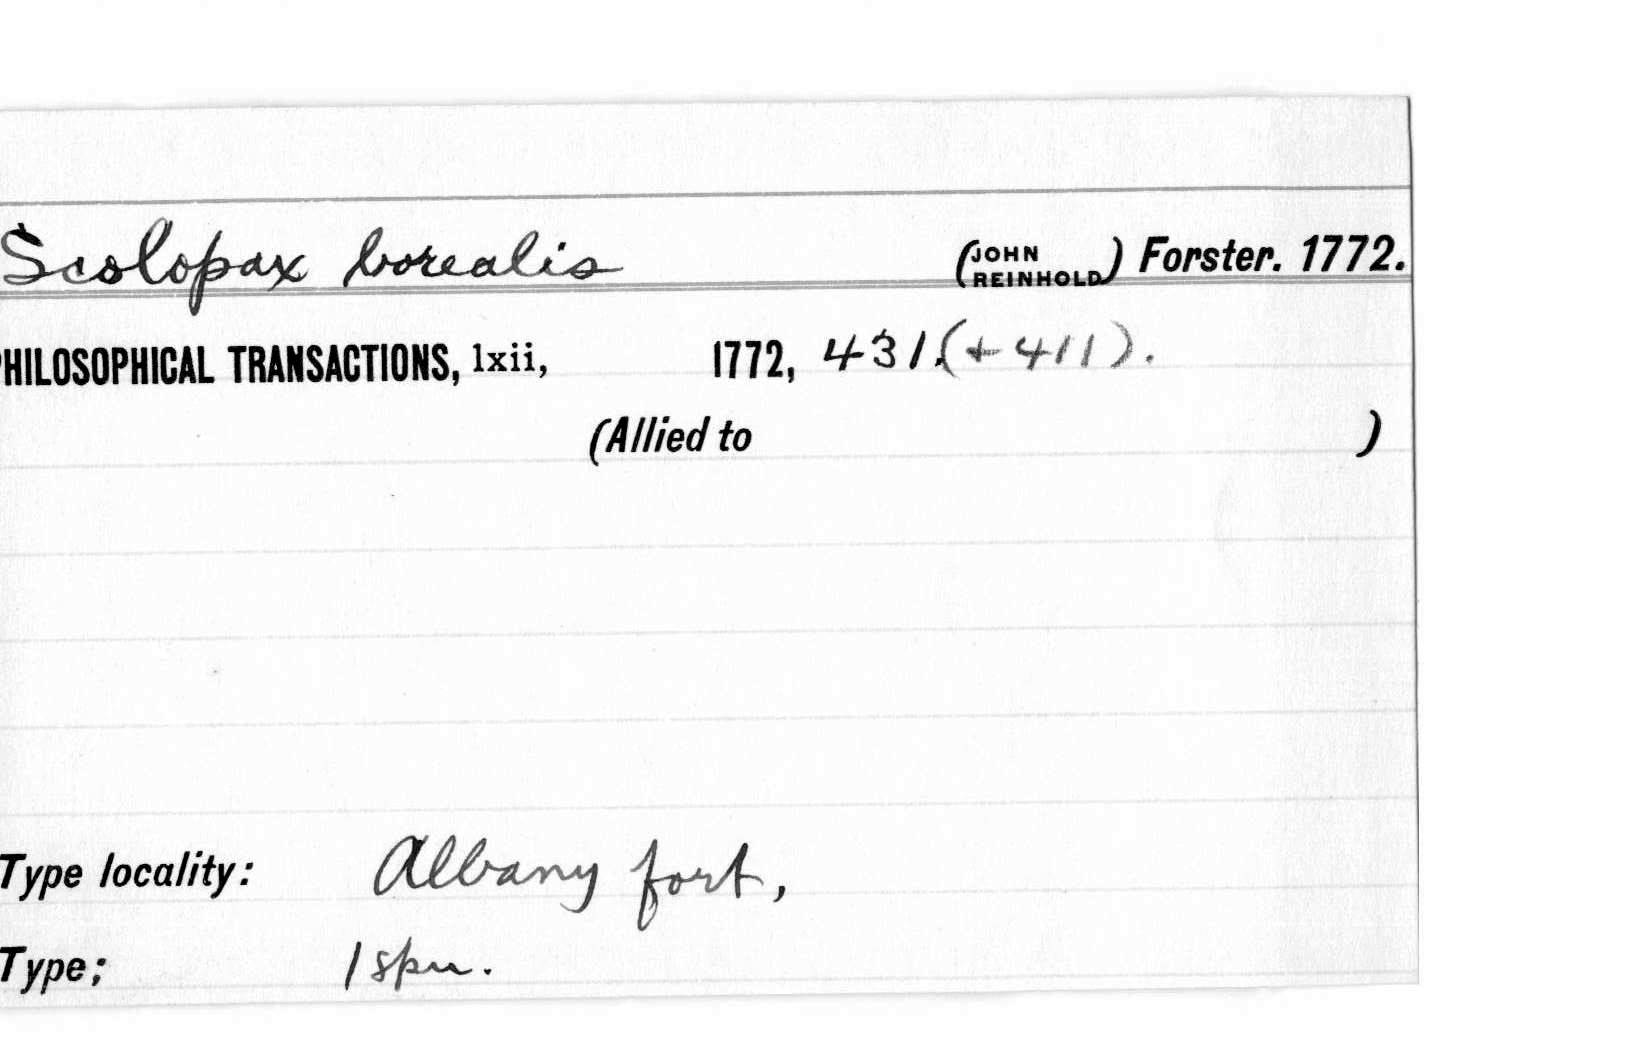 Scolopax borealis (JOHN REINHOLD) Forster. 1772.
PHILOSOPHICAL TRANSACTIONS, lxii, 1772, 431.(+411).
(Allied to )
Type locality: Albany fort,
Type; 1 spn.